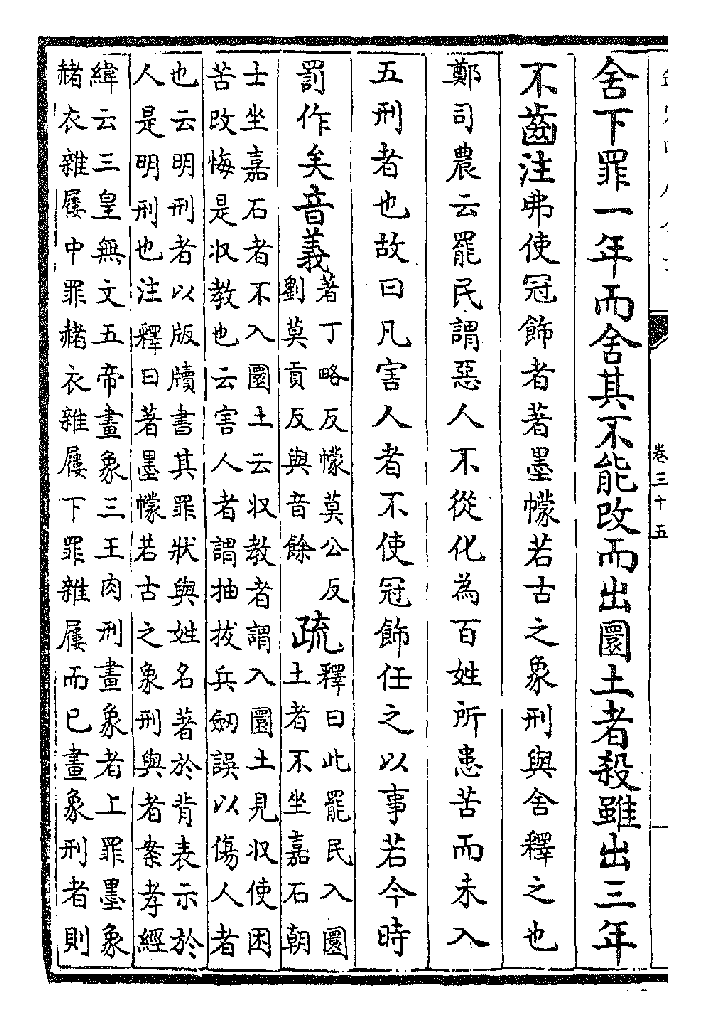 卷三十五
舍下罪一年而舍其不能改而出圜土者殺雖出三年
不齒注弗使冠飾者著墨幪若古之象刑與舍釋之也
鄭司農云罷民謂惡人不從化為百姓所患苦而未入
五刑者也故曰凡害人者不使冠飾任之以事若今時
罰作矣音義
著丁略反幪莫公反
劉莫貢反與音餘
疏
釋曰此罷民入圜
土者不坐嘉石朝
士坐嘉石者不入圜土云収教者謂入圜土見収使困
苦改悔是収教也云害人者謂抽拔兵劒誤以傷人者
也云明刑者以版牘書其罪狀與姓名著於背表示於
人是明刑也注釋曰著墨幪若古之象刑與者案孝經
緯云三皇無文五帝畫象三王肉刑畫象者上罪墨象
赭衣雜屨中罪赭衣雜屨下罪雜屨而已畫象刑者則